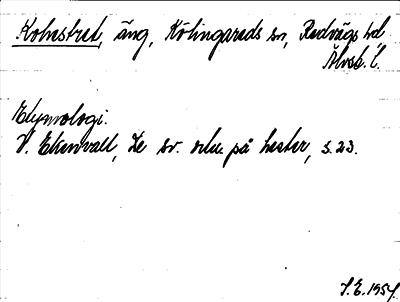 Kohestret, äng, Kölingareds sn, Redvägs hd
Älvsb. l.
Etymologi.
V. Ekenvall, De sv. selw. på hester, s. 23.
V.E. 1954.